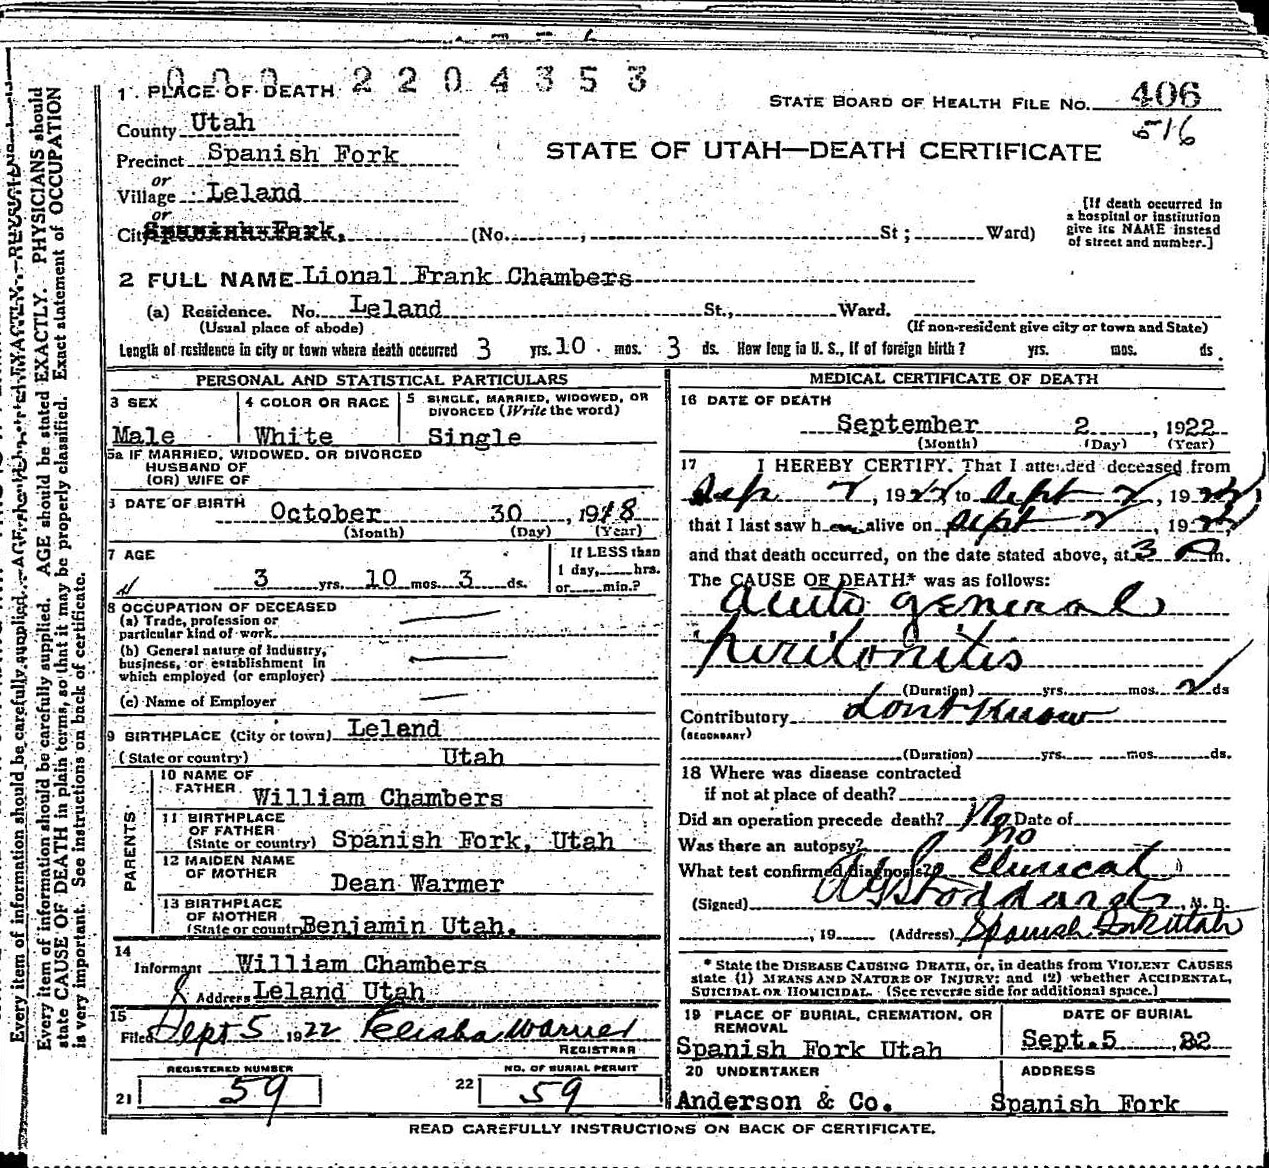 000 2204353
1 PLACE OF DEATH
STATE BOARD OF HEALTH FILE NO. 406
516
County Utah
Precinct Spanish Fork
STATE OF UTAH—DEATH CERTIFICATE
or
Village Leland
or
City Spanish Fork, (No. , St ; Ward)
[If death occurred in
a hospital or institution
give its NAME instead
of street and number.]
2 FULL NAME Lional Frank Chambers
(a) Residence. No. Leland St., Ward.
(Usual place of abode) (If non-resident give city or town and State)
Length of residence in city or town where death occurred 3 yrs. 10 mos. 3 ds. How long in U. S., if of foreign birth? yrs. mos. ds.
PERSONAL AND STATISTICAL PARTICULARS
3 SEX
Male
4 COLOR OR RACE
White
5 SINGLE, MARRIED, WIDOWED, OR
DIVORCED (Write the word)
Single
5a IF MARRIED, WIDOWED, OR DIVORCED
HUSBAND OF
(OR) WIFE OF
6 DATE OF BIRTH
October 30 , 1918
(Month) (Day) (Year)
7 AGE
3 yrs. 10 mos. 3 ds.
If LESS than
1 day, hrs.
or min.?
8 OCCUPATION OF DECEASED
(a) Trade, profession or
particular kind of work
(b) General nature of industry,
business, or establishment in
which employed (or employer)
(c) Name of Employer
9 BIRTHPLACE (City or town) Leland
(State or country) Utah
PARENTS
10 NAME OF
FATHER William Chambers
11 BIRTHPLACE
OF FATHER
(State or country) Spanish Fork, Utah
12 MAIDEN NAME
OF MOTHER Dean Warmer
13 BIRTHPLACE
OF MOTHER
(State or country) Benjamin Utah.
14
Informant William Chambers
Address Leland Utah
15
Filed Sept 5 1922 Elisha Warner
REGISTRAR
REGISTERED NUMBER
21 59
NO. OF BURIAL PERMIT
22 59
MEDICAL CERTIFICATE OF DEATH
16 DATE OF DEATH
September 2 , 1922
(Month) (Day) (Year)
17 I HEREBY CERTIFY, That I attended deceased from
Sep 2, 1922 to Sept 2, 1922
that I last saw h alive on Sept 2, 1922
and that death occurred, on the date stated above, at 3 P m.
The CAUSE OF DEATH* was as follows:
acute general
peritonitis
(Duration) yrs. mos. 2 ds
Contributory dont know
(SECONDARY)
(Duration) yrs. mos. ds.
18 Where was disease contracted
if not at place of death?
Did an operation precede death? No Date of
Was there an autopsy? no
What test confirmed diagnosis? Clinical
(Signed) Stoddard, M. D.
, 19 (Address) Spanish Fork Utah
* State the DISEASE CAUSING DEATH, or, in deaths from VIOLENT CAUSES
state (1) MEANS AND NATURE OF INJURY; and (2) whether ACCIDENTAL,
SUICIDAL OR HOMICIDAL. (See reverse side for additional space.)
19 PLACE OF BURIAL, CREMATION, OR
REMOVAL
Spanish Fork Utah
DATE OF BURIAL
Sept. 5 , 22
20 UNDERTAKER
Anderson & Co.
ADDRESS
Spanish Fork
READ CAREFULLY INSTRUCTIONS ON BACK OF CERTIFICATE.
Every item of information should be carefully supplied. AGE should be stated EXACTLY. PHYSICIANS should
state CAUSE OF DEATH in plain terms, so that it may be properly classified. Exact statement of OCCUPATION
is very important. See instructions on back of certificate.